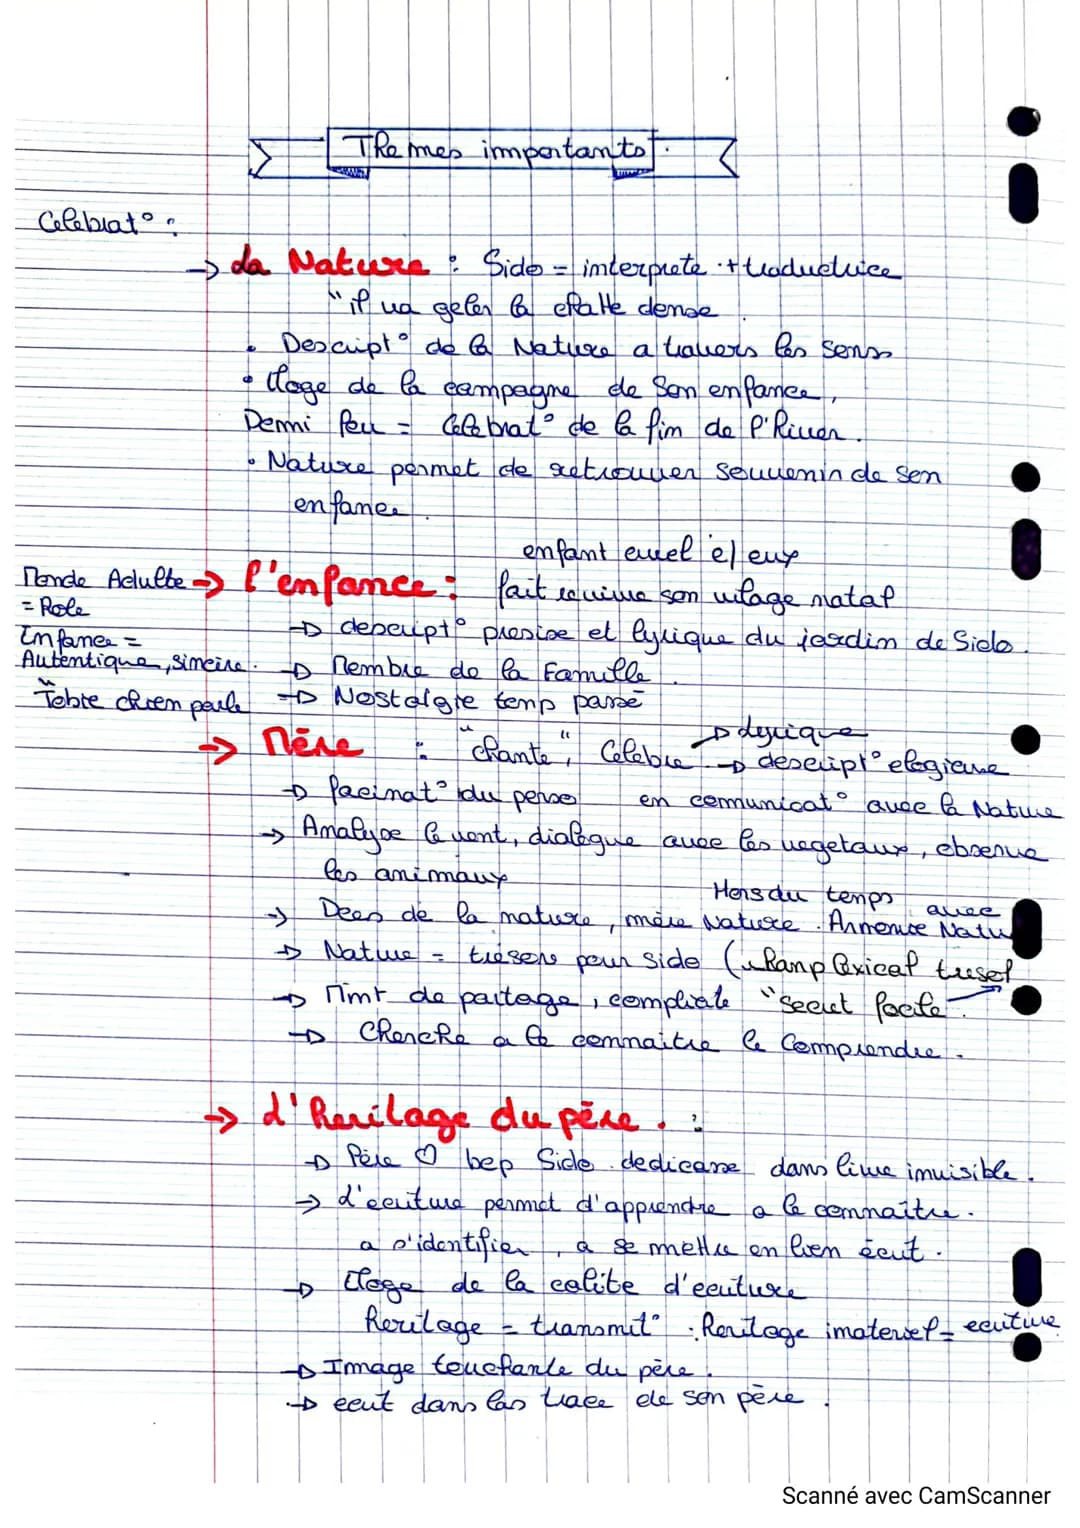 Themes importants.
Celebrat° :
→ La Nature : Sido = interprete + traductrice
"il va geler la chatte danse
• Descript° de la Nature a travers les sens
• Eloge de la campagne de son enfance,
Derni feu = Celebrat° de la fin de l'hiver.
• Nature permet de retrouver souvenir de son
enfance.
enfant cruel e/ eux
Monde Adulte → l'enfance : fait revivre son vilage natal
= Role
→ descript° presise et lyrique du jardin de Sido.
Enfance =
Autentique, sincire. → Membre de la Famille.
Tobie chien parle → Nostalgie temp passé
→ lyrique
→ Mère : "chante", Celebre → descript° elogieuse
→ facinat° du perso en comunicat° avec la Nature
→ Analyse le vent, dialogue avec les vegetaux, observe
les animaux
Hors du temps avec
→ Dees de la nature, mère Nature. Annonce Natu
→ Nature = trésors pour sido (champ lexical tresel
→ Mmt de partage, compliate "secret facile".
→ Cherche a la connaitre le Comprendre.
→ L'heritage du père. :
→ Père ♡ bep Sido. dedicasse dans livre invisible.
→ L'ecriture permet d'apprendre a le connaître.
a s'identifier, a se mettre en lien écrit.
→ Eloge de la calite d'ecriture
heritage = transmit° . heritage imateriel = ecriture
→ Image touchante du père.
→ ecrit dans las trace de son père.
Scanné avec CamScanner